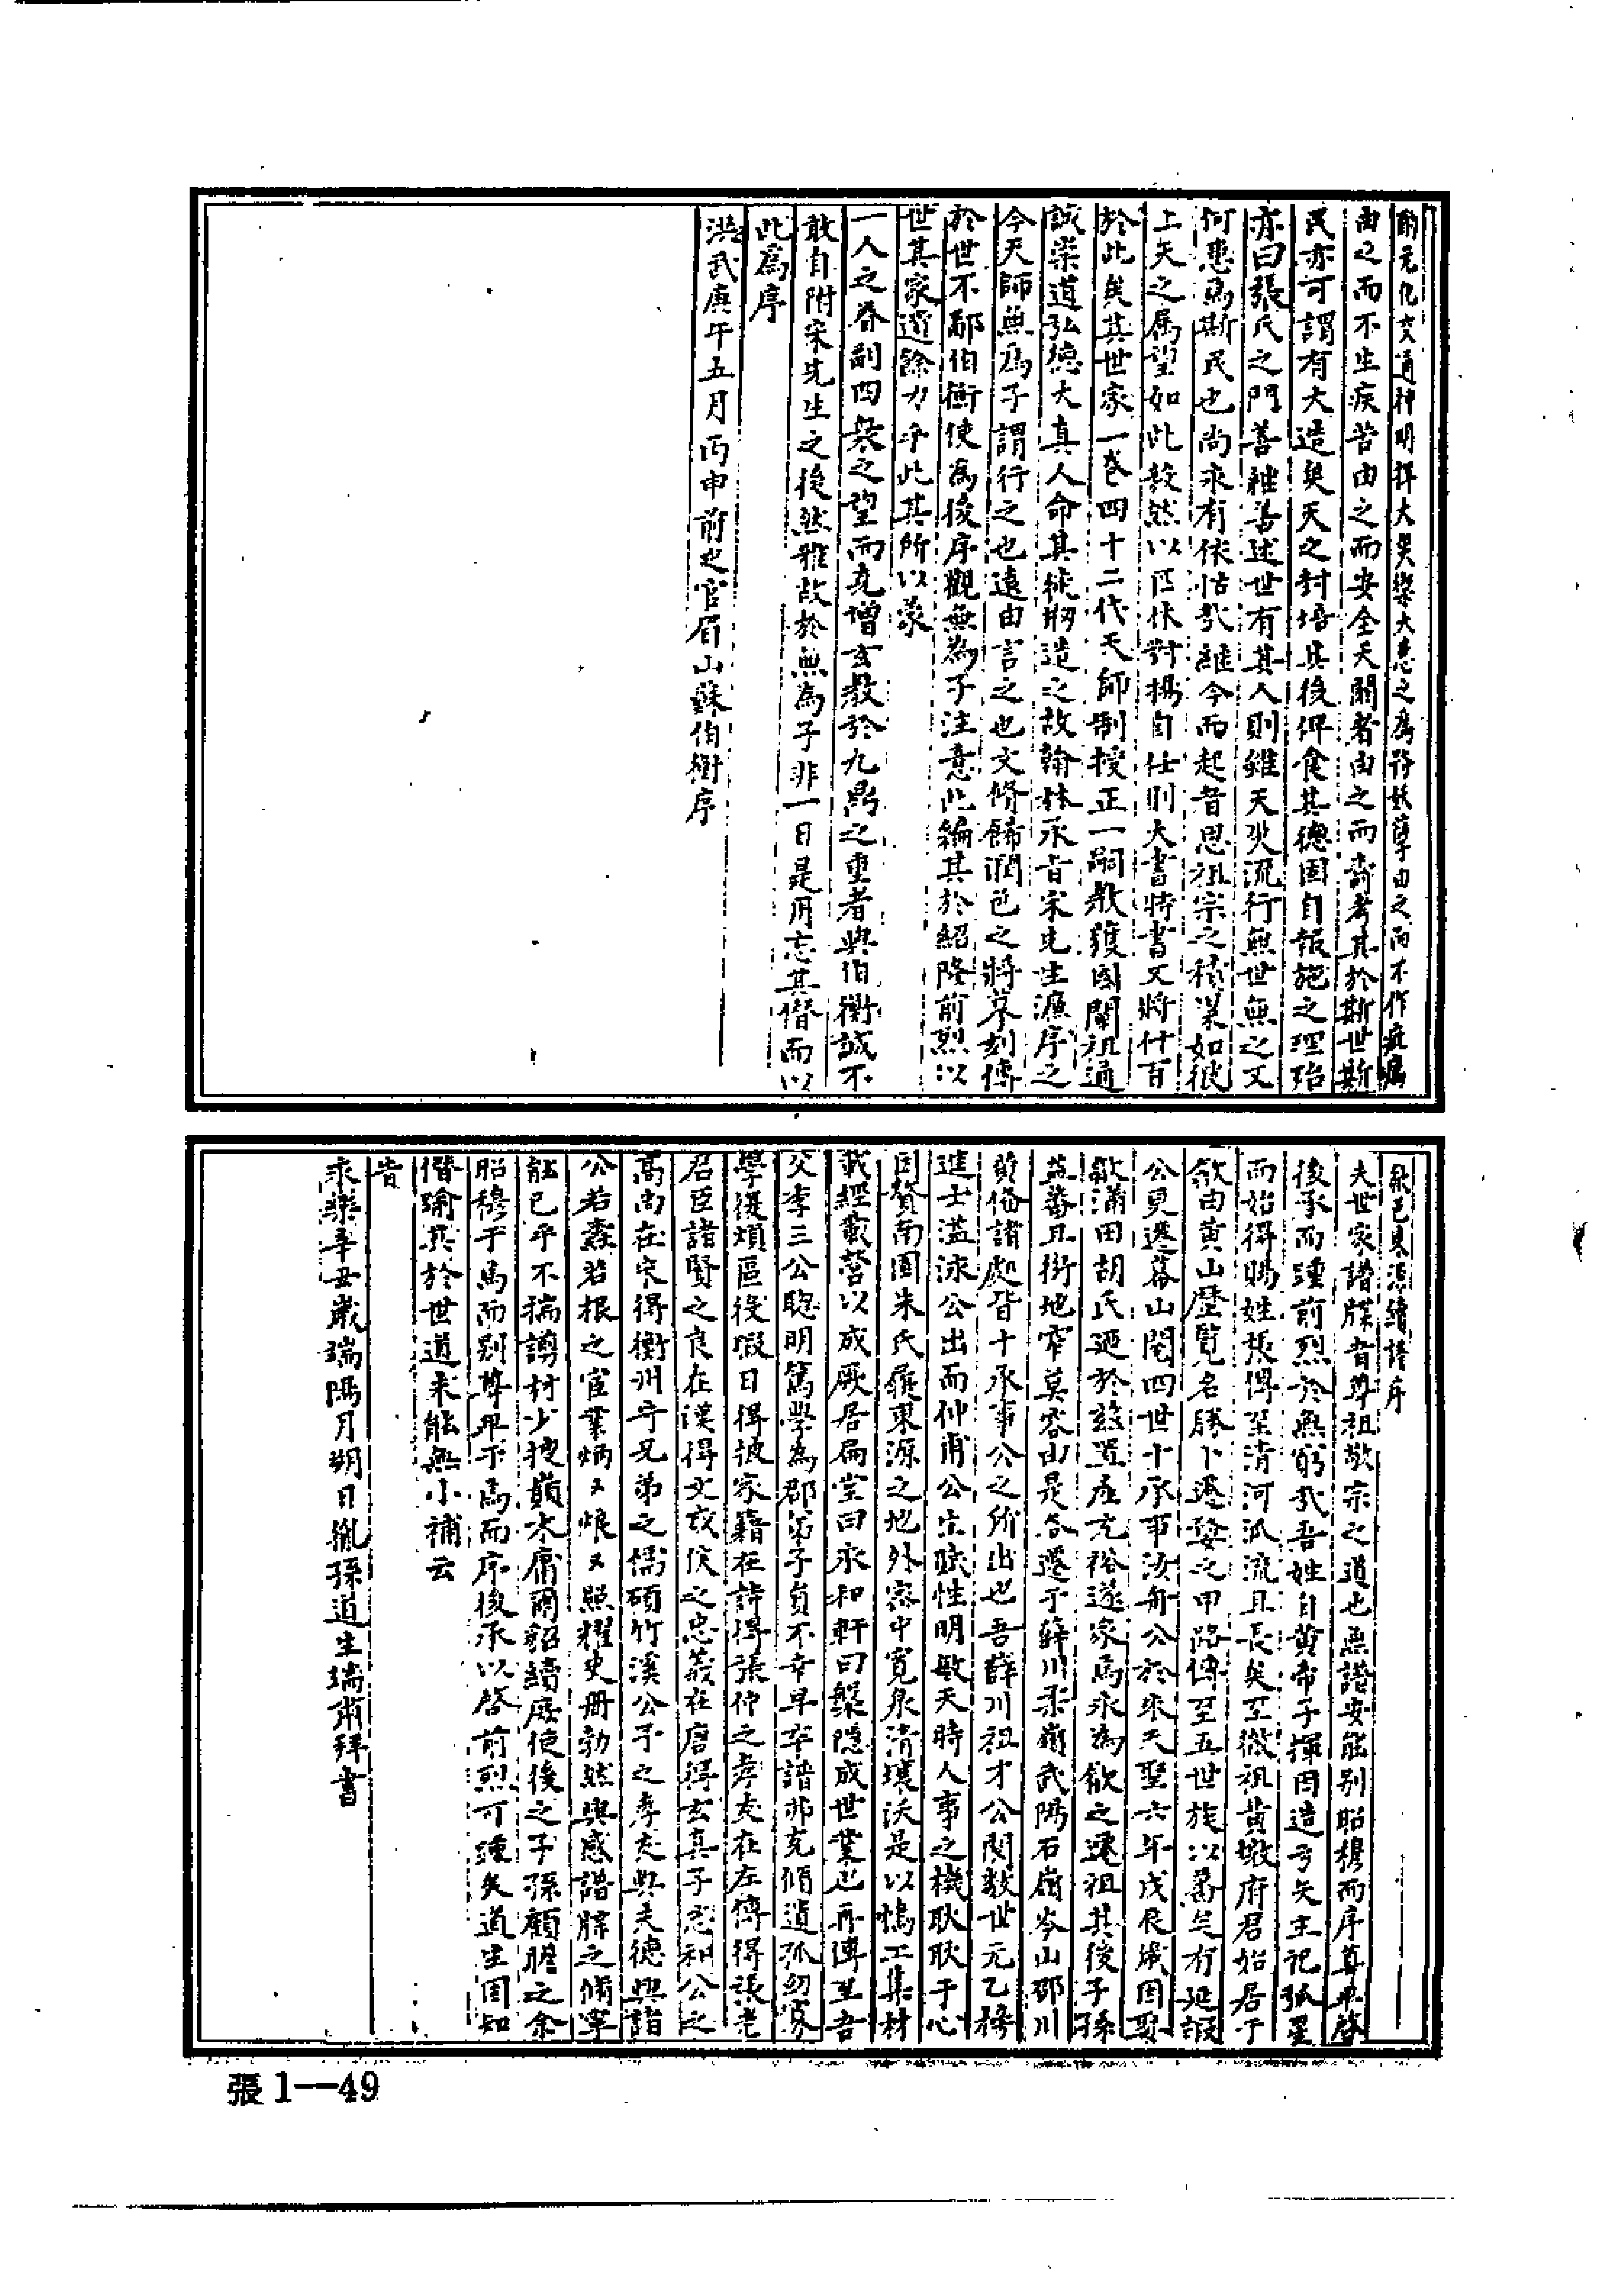 酌元化交通神明捍大災禦大患之爲務妖孽由之而不作疵癘
由之而不生疾苦由之而安全天閼者由之而壽考其於斯世斯
民亦可謂有大造矣天之封培其後俾食其德固自報施之理殆
亦曰張氏之門善繼善述世有其人則雖天災流行無世無之又
何患焉斯民也尚永有依怙哉繼今而起者思祖宗之積累如彼
上天之属望如此敎然以匹休對揚自任則大書特書又將什百
於此矣其世家一卷四十二代天師制授正一嗣敎護國闡祖通
誠崇道弘德大真人命其徒編造之故翰林承旨宋先生濂序之
今天師無爲子謂行之也遠由言之也文脩飾潤色之將摹刻傳
於世不鄙伯衡使爲後序觀無為子注意此編其於紹隆前烈以
世其家遺餘力乎此其所以蒙
一人之眷副四衆之望而克增玄教於九鼎之重者與伯衡誠不
敢自附宋先生之後然雅故於無為子非一日是用忘其僭而以
此爲序
洪武庚午五月丙申前史官眉山蘇伯衡序
歙邑東源續譜序
夫世家譜牒者尊祖敬宗之道也無譜安能别昭穆而序尊卑啓
後承而踵前烈於無窮哉吾姓自黄帝子揮因造弓矢主祀弧星
而始得賜姓張傳至清河派流且長矣至徽祖黄墩府君始居于
歙由黄山歷覽名勝卜遷婺之甲路傳至五世族以蕃矣有延嘏
公見遷幕山閲四世十承事汝舟公於宋天聖六年戊辰歲因娶
歙滿田胡氏廼於兹置產充裕遂家焉永為歙之遷祖其後子孫
益蕃且衍地窄莫容由是各遷于薛川柔嶺武隅石嶺岑山鄢川
黄備諸處皆十承事公之所出也吾薛川祖才公閲数世元乙榜
進士溢泳公出而仲甫公生賦性明敏天時人事之機耿耿于心
因贅南園朱氏羨東源之地外密中寬泉清壤沃是以鳩工集材
載經載營以成厥居扁堂曰永和軒曰槃隱成世業也再傳至吾
父李三公聰明篤學為郡弟子員不幸早卒譜弗克脩遺孤幼寡
學復煩區役暇日得披家籍在詩得張仲之孝友在左傳得張老
君臣諸賢之良在漢得文成侯之忠義在唐得玄真子志和公之
高尚在宋得衢州守兄弟之儒碩竹溪公子之孝友與夫德興諸
公若燾若根之宦業炳又烺又照耀史册勃然與感譜牒之脩寧
能已乎不揣譾材少搜蕑木庸爾紹續庶使後之子孫顧瞻之余
昭穆于焉而别尊卑于焉而序後承以啓前烈可踵矣道生固知
僭踰其於世道未能無小補云
旹
永樂辛丑歲端陽月朔日胤孫道生端甫拜書
張1—49